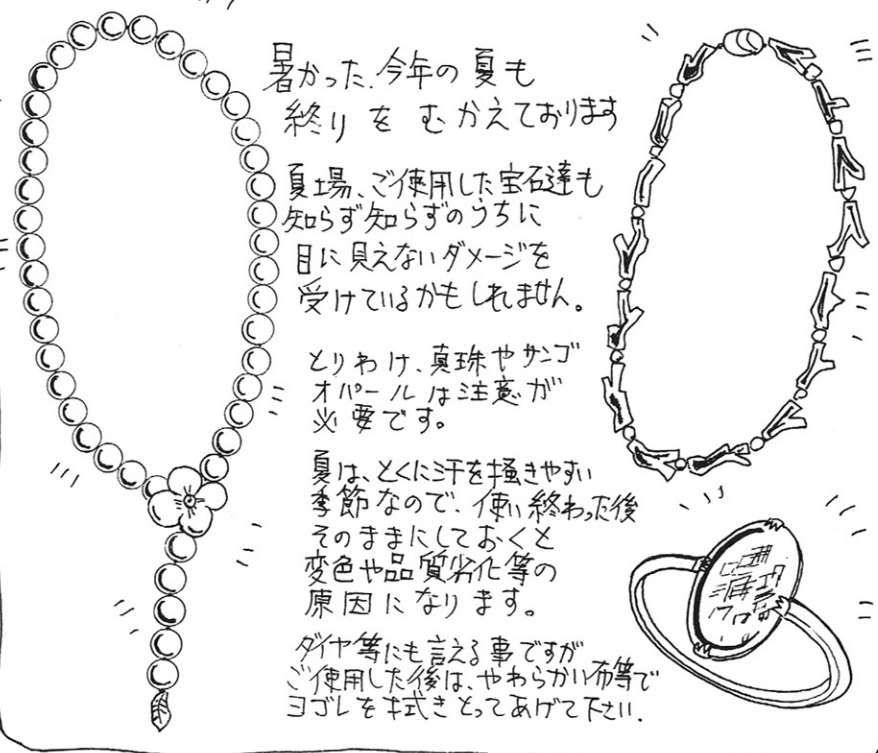 暑かった、今年の夏も
終りをむかえております
夏場、ご使用した宝石達も
知らず知らずのうちに
目に見えないダメージを
受けているかもしれません。
とりわけ、真珠やサンゴ
オパールは注意が
必要です。
夏は、とくに汗を掻きやすい
季節なので、使い終わった後
そのままにしておくと
変色や品質劣化等の
原因になります。
ダイヤ等にも言える事ですが
ご使用した後は、やわらかい布等で
ヨゴレを拭きとってあげて下さい.